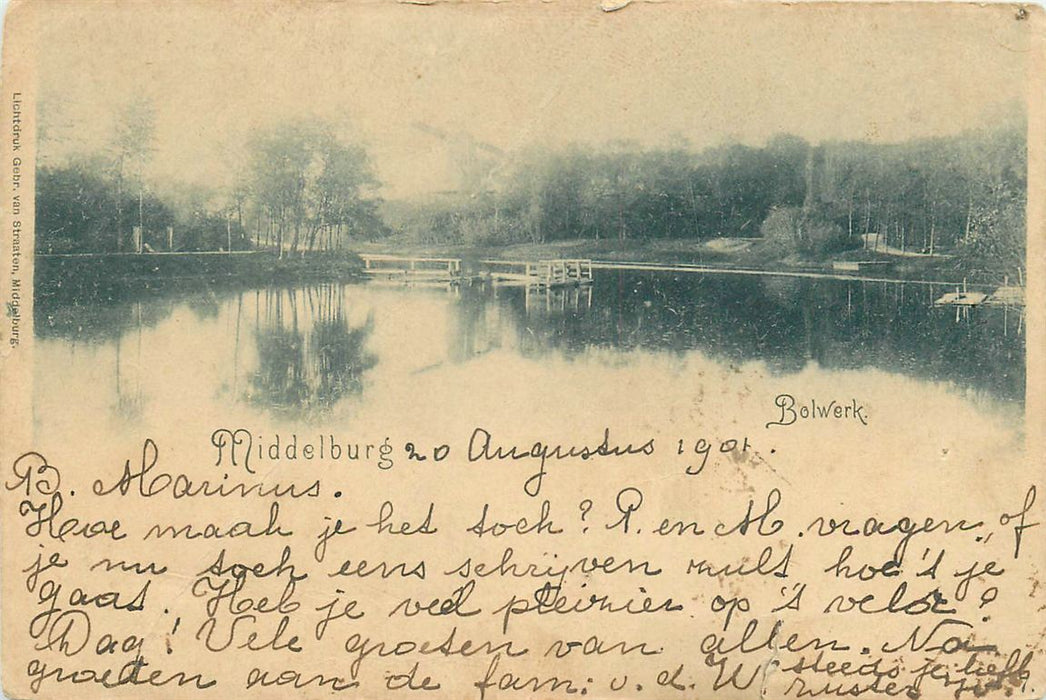 Lichtdruk Gebr. van Straaten, Middelburg.
Bolwerk.
Middelburg 20 Augustus 1901.
B. Marinus.
Hoe maak je het toch? P. en M. vragen of
je nu toch eens schrijven zult hoe 't je
gaat. Heb je veel pleizier op 't veld?
Dag! Vele groeten van allen. No
groeten aan de fam: v. d. W.
steeds je liefh.
zuster